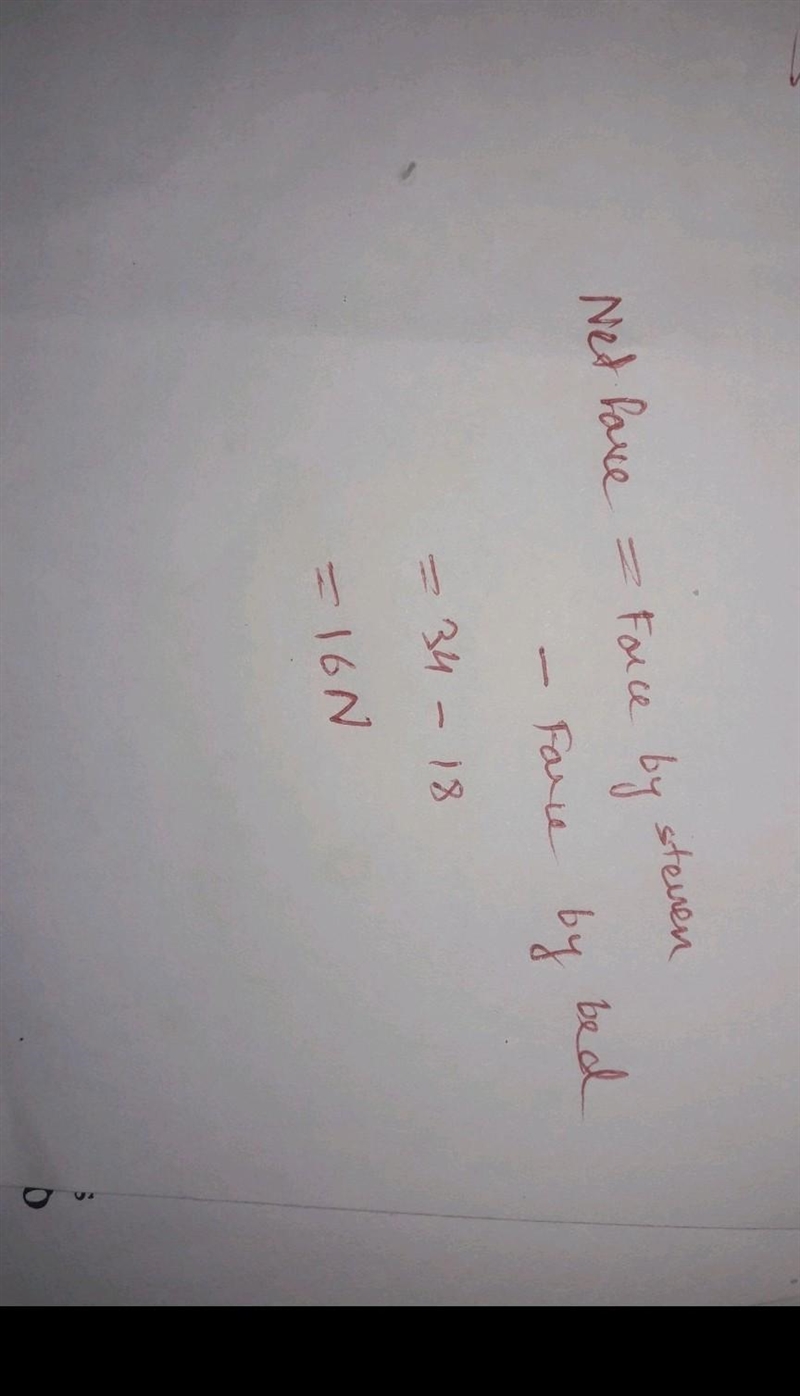 Net force = Force by steven
- Force by bed
= 34 - 18
= 16 N